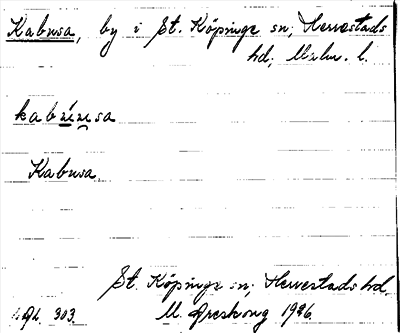 Kabusa, by i St. Köpinge sn, Herrestads
hd, Malm. l.
Kabusa
St. Köpinge sn, Herrestads hd.
1926.
303.